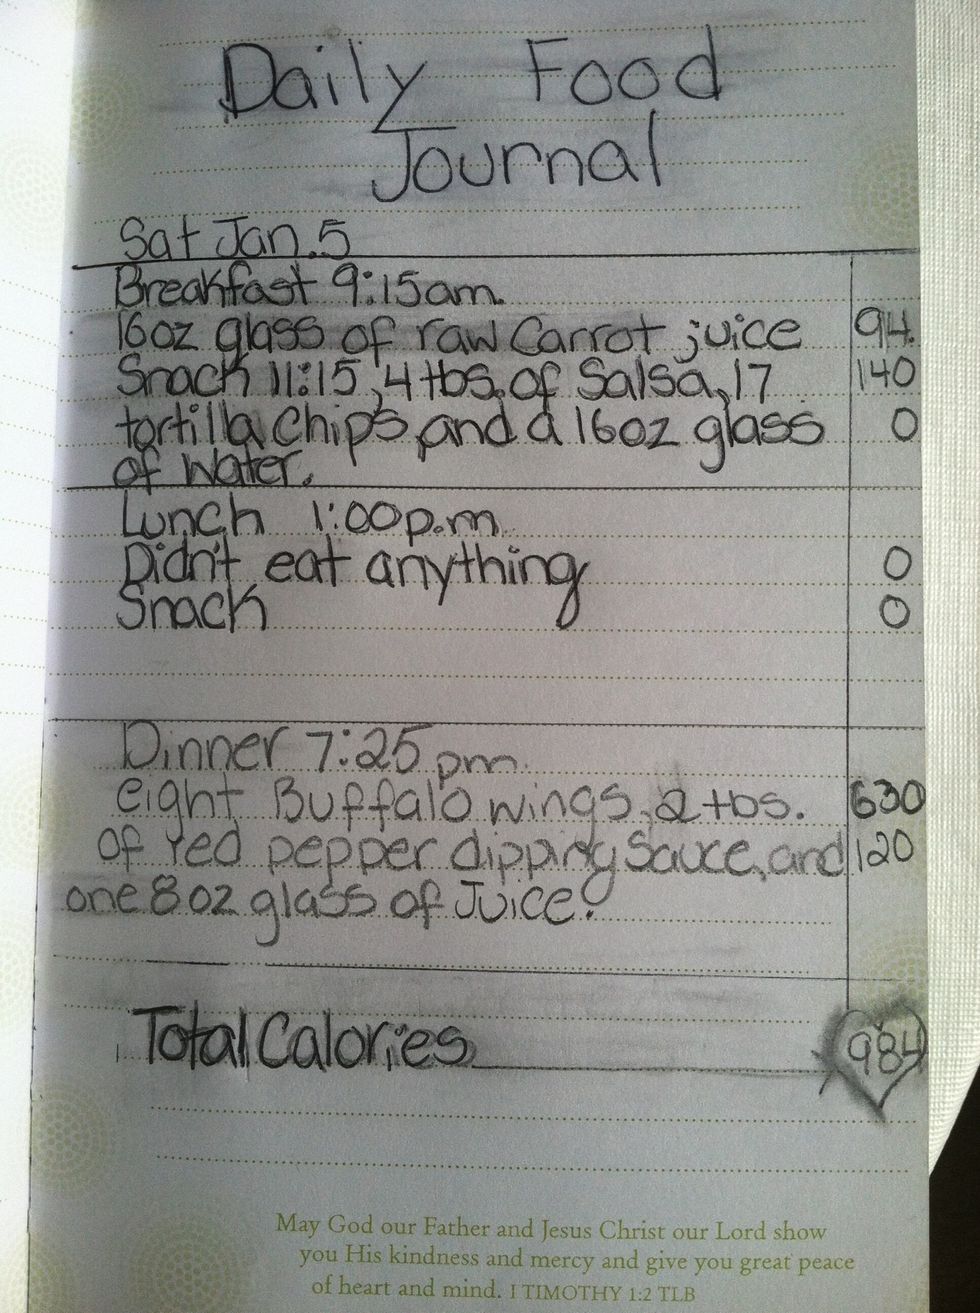 Daily Food
Journal
Sat Jan. 5
Breakfast 9:15am.
16oz glass of raw Carrot juice 94.
Snack 11:15, 4 tbs. of Salsa, 17 140
tortilla chips, and a 16oz glass 0
of Water.
Lunch 1:00p.m.
Didn't eat anything 0
Snack 0
Dinner 7:25 pm.
eight Buffalo wings, 2 tbs. 630
of red pepper dipping Sauce, and 120
one 8oz glass of Juice.
Total Calories 984
May God our Father and Jesus Christ our Lord show
you His kindness and mercy and give you great peace
of heart and mind. I TIMOTHY 1:2 TLB